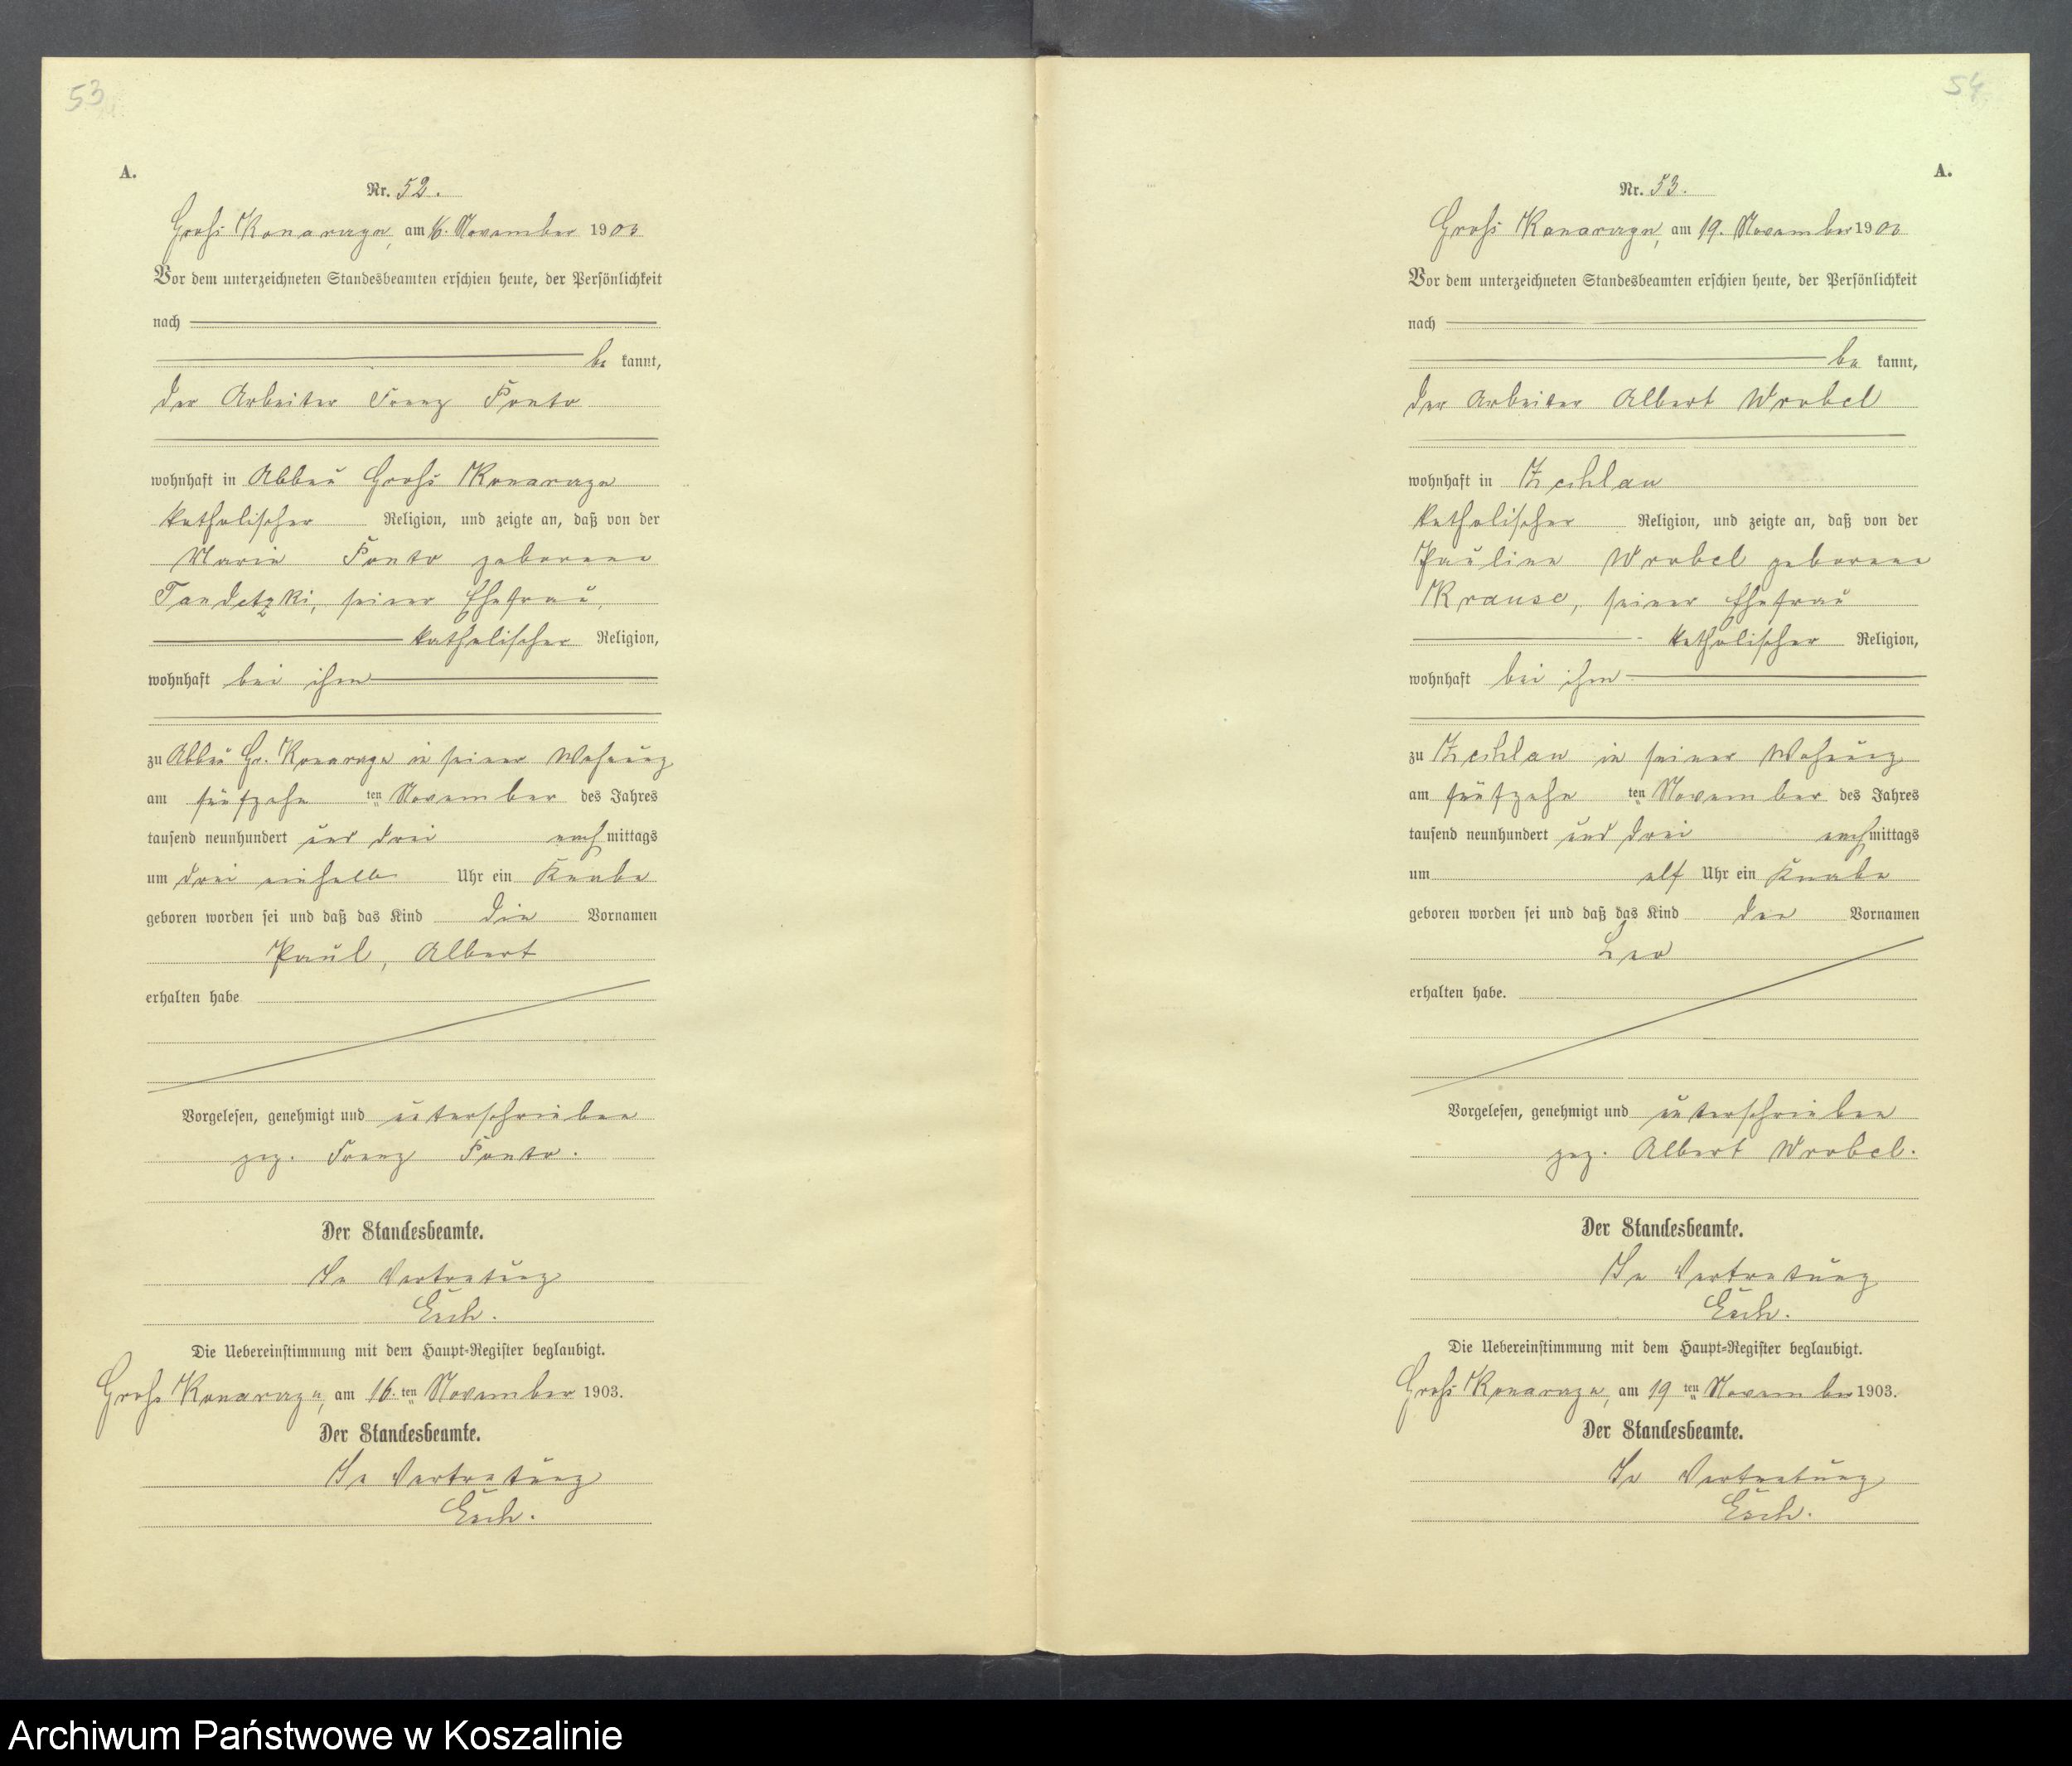 53
A.
Nr. 52.
Groß Konarczyn, am 16. November 1903
Vor dem unterzeichneten Standesbeamten erschien heute, der Persönlichkeit
nach
be kannt,
der Arbeiter Franz
wohnhaft in Abbau Groß Konarczyn
katholischer Religion, und zeigte an, daß von der
Maria geborene
Tandetzki, seiner Ehefrau,
katholischer Religion,
wohnhaft bei ihm
zu Abbau Gr. Konarczyn in seiner Wohnung
am fünfzehn ten November des Jahres
tausend neunhundert und drei nach mittags
um drei einhalb Uhr ein Knabe
geboren worden sei und daß das Kind die Vornamen
Paul, Albert
erhalten habe
Vorgelesen, genehmigt und unterschrieben
gez. Franz
Der Standesbeamte.
In Vertretung
Esch.
Die Uebereinstimmung mit dem Haupt-Register beglaubigt.
Groß Konarczyn, am 16. ten November 1903.
Der Standesbeamte.
In Vertretung
Esch.
54
A.
Nr. 53.
Groß Konarczyn, am 19. November 1903
Vor dem unterzeichneten Standesbeamten erschien heute, der Persönlichkeit
nach
be kannt,
der Arbeiter Albert Wrobel
wohnhaft in Zechlau
katholischer Religion, und zeigte an, daß von der
Pauline Wrobel geborene
Krause, seiner Ehefrau
katholischer Religion,
wohnhaft bei ihm
zu Zechlau in seiner Wohnung
am fünfzehn ten November des Jahres
tausend neunhundert und drei nach mittags
um elf Uhr ein Knabe
geboren worden sei und daß das Kind den Vornamen
Leo
erhalten habe.
Vorgelesen, genehmigt und unterschrieben
gez. Albert Wrobel.
Der Standesbeamte.
In Vertretung
Esch.
Die Uebereinstimmung mit dem Haupt-Register beglaubigt.
Groß Konarczyn, am 19 ten November 1903.
Der Standesbeamte.
In Vertretung
Esch.
Archiwum Państwowe w Koszalinie